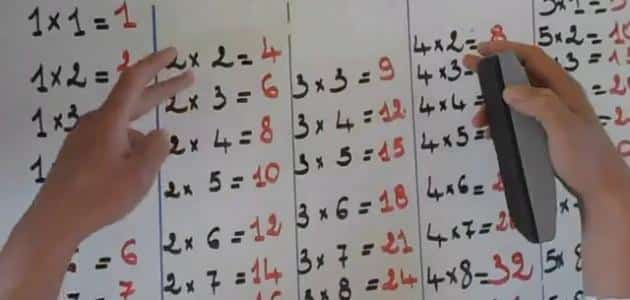 1 × 1 = 1
1 × 2 =
1 × 3
= 6
7
2 × 2 = 4
2 × 3 = 6
2 × 4 = 8
2 × 5 = 10
2 × 6 = 12
2 × 7 = 14
3 × 3 = 9
3 × 4 = 12
3 × 5 = 15
3 × 6 = 18
3 × 7 = 21
3 × 8 = 24
4 × 2 = 8
4 × 3 =
4 × 4 =
4 × 5 =
4 × 6 =
4 × 7 =
4 × 8 = 32
5 × 1 =
5 × 2 = 10
× 3 =
5 × 8